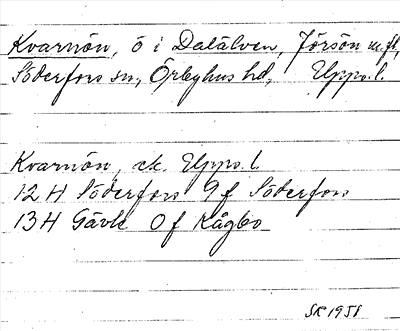 Kvarnön, ö i Dalälven, Jörsön m.fl.,
Söderfors sn, Örbyhus hd, Upps.l.
Kvarnön, ek. Upps.l.
12 H Söderfors 9f Söderfors
13 H Gävle 0f Kågbo
SK 1958